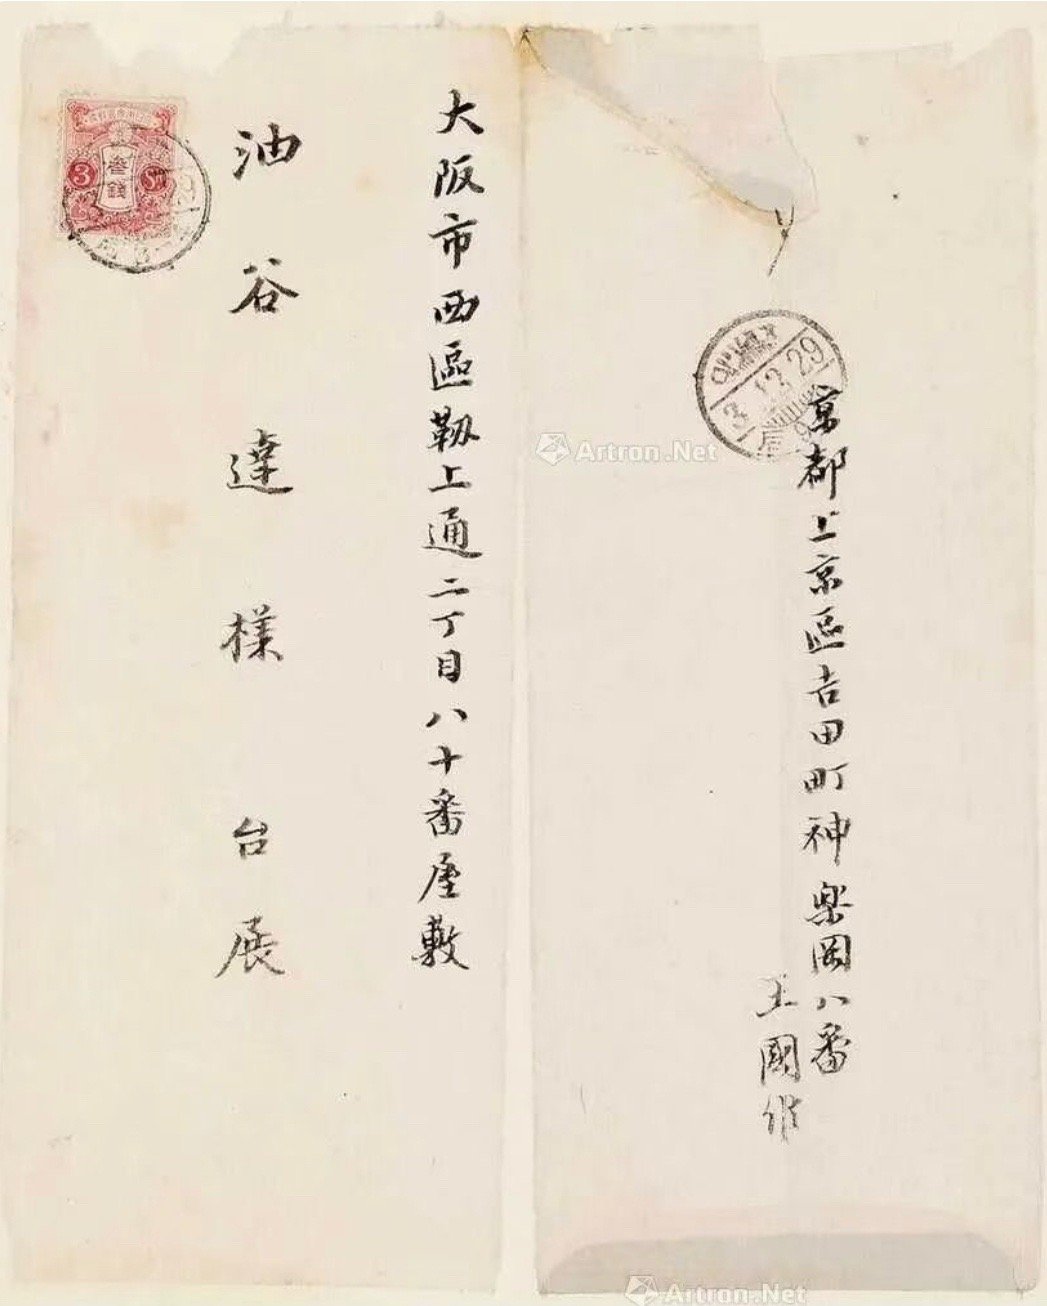 大阪市西區靱上通二丁目八十番屋敷
油谷達樣 台展
3
叁錢
Sn
29
京都上京區吉田町神楽岡八番
王國維
3.12.29
Artron.Net
Artron.Net